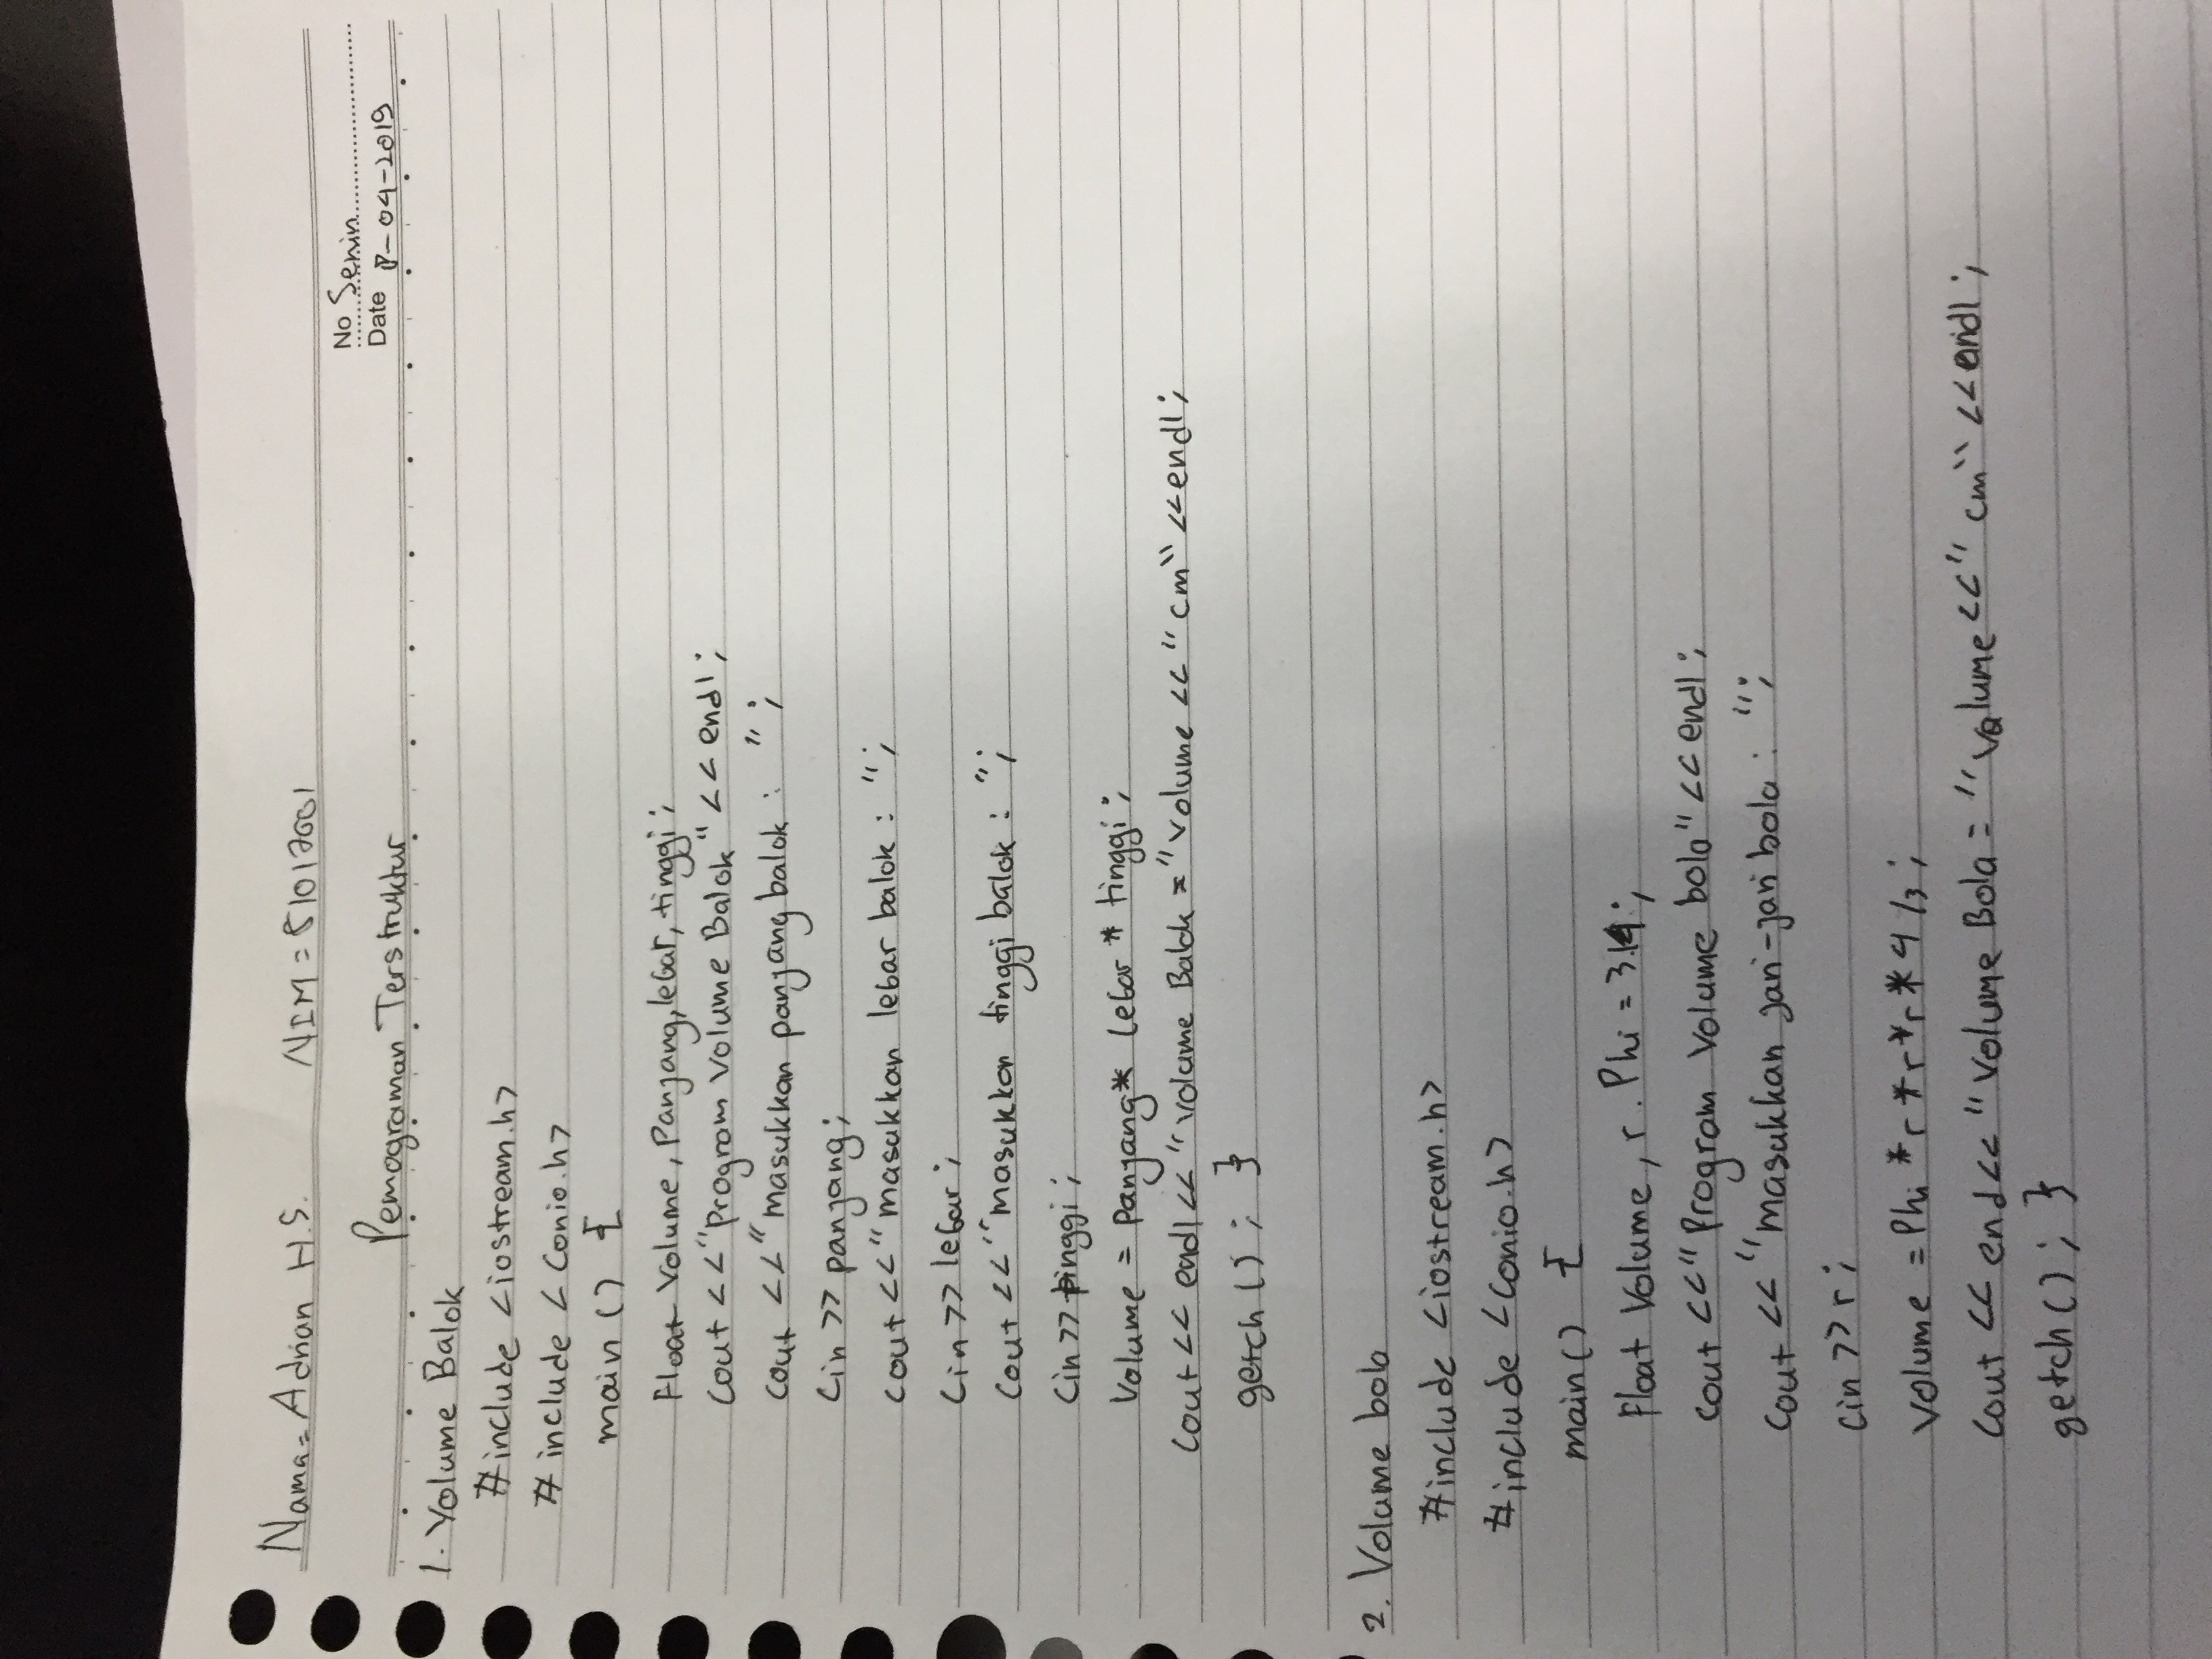 Nama = Adrian H.S. NIM = 51017001
No Senin
Date 8-04-2019
Pemograman Terstruktur
1. Volume Balok
#include <iostream.h>
#include <Conio.h>
main () {
Float Volume, Panjang, lebar, tinggi;
Cout <<"Program Volume Balok" << endl;
cout <<"masukkan panjang balok : ";
Cin >> panjang;
cout <<"masukkan lebar balok : ";
Cin >> lebar;
Cout <<"masukkan tinggi balok : ";
Cin >> tinggi;
Volume = Panjang * lebar * tinggi;
Cout << endl << "Volume Balok = "Volume << "cm" << endl;
getch (); }
2. Volume bola
#include <iostream.h>
#include <Conio.h>
main() {
Float Volume, r. Phi = 3.14;
Cout <<"Program Volume bola" << endl;
Cout << "masukkan jari-jari bola : ";
Cin >> r;
Volume = Phi * r * r * r * 4 /3;
Cout << end << "Volume Bola = "Volume << " cm" << endl;
getch (); }